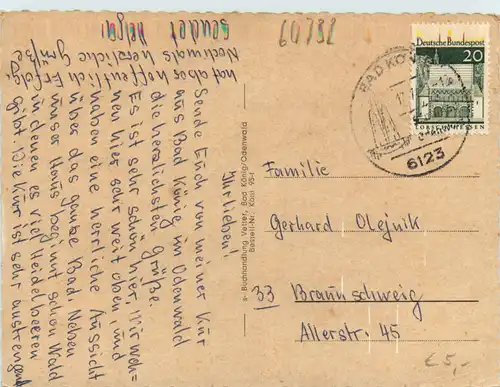 Ihr Lieben!
Sende Euch von meiner Kur
aus Bad König im Odenwald
die herzlichsten Grüße.
Es ist sehr schön hier. Wir woh-
nen hier sehr weit oben und
haben eine herrliche Aussicht
über das ganze Bad. Neben
unser Haus beginnt schon Wald
in denen es viel Heidelbeeren
gibt. Die Kur ist sehr anstrengend
hat aber hoffentlich Erfolg.
Nochmals herzliche Grüße
sendet Helga
64732
Deutsche Bundespost
20
LORSCH/HESSEN
BAD KÖNIG
6123
Buchhandlung Vetter, Bad König/Odenwald
Bestell-Nr.
Familie
Gerhard Olejnik
33 Braunschweig
Allerstr. 45
€ 5,-